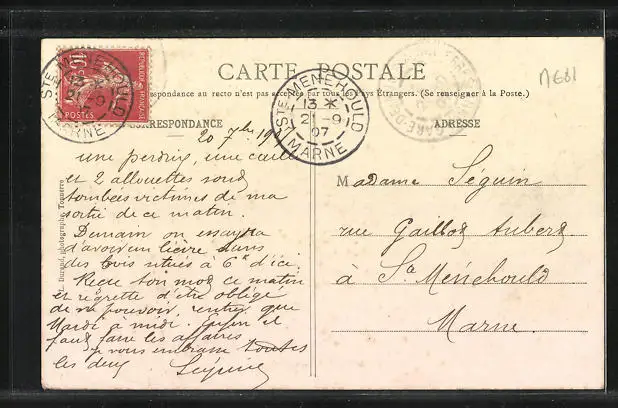 CARTE POSTALE
respondance au recto n'est pas acceptée par tous les Pays Étrangers. (Se renseigner à la Poste.)
CORRESPONDANCE
ADRESSE
N681
10
POSTES
STE MENEHOULD
13 *
21-9
07
MARNE
20 7bre 19
une perdrix, une caille
et 2 allouettes sont
tombées victimes de ma
sortie de ce matin.
Demain on essayera
d'avoir un lièvre dans
des bois situés à 6 K d'ici.
Reçu ton mot ce matin
et regrette d'être obligé
de ne pouvoir rentrer que
Mardi à midi. Enfin il
faut faire les affaires
je vous embrasse toutes
les deux Séguin
Durand, photographe, Tonnerre
Madame Séguin
rue Gaillot Aubert
à Ste Menehould
Marne.